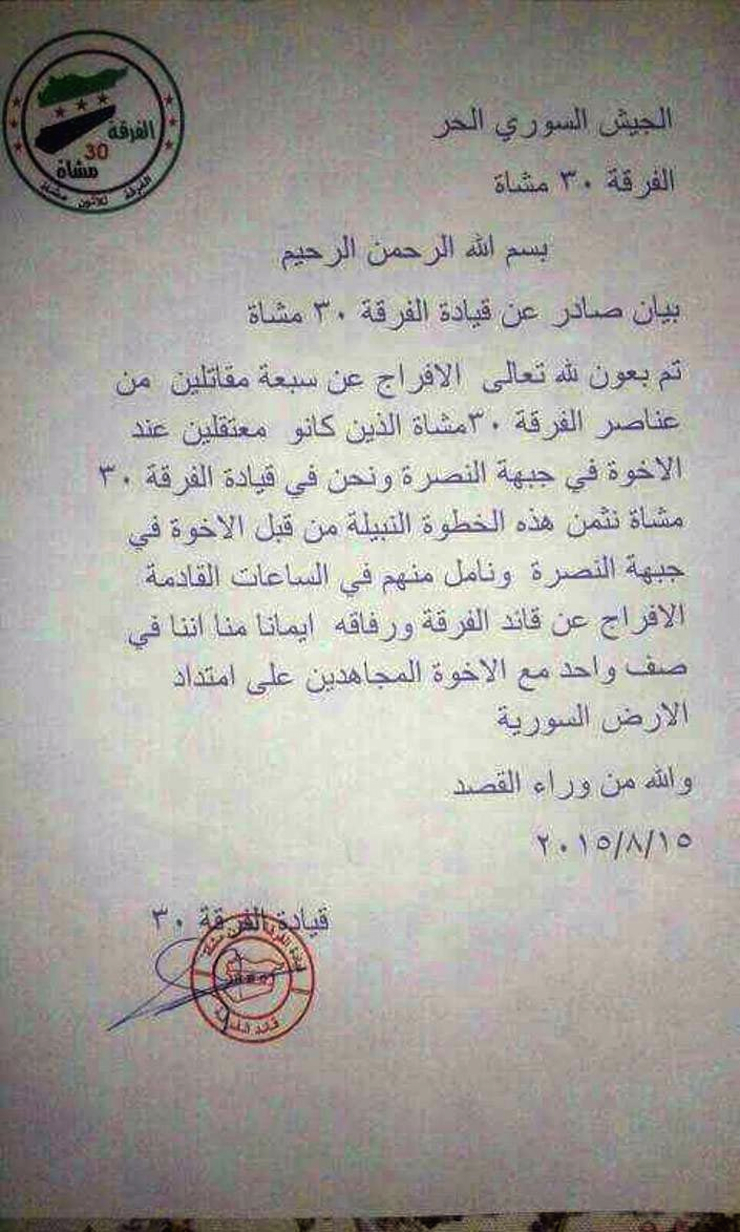 الفرقة
30
مشاة
الفرقة ثلاثون مشاة
الجيش السوري الحر
الفرقة ٣٠ مشاة
بسم الله الرحمن الرحيم
بيان صادر عن قيادة الفرقة ٣٠ مشاة
تم بعون لله تعالى الافراج عن سبعة مقاتلين من
عناصر الفرقة ٣٠مشاة الذين كانو معتقلين عند
الاخوة في جبهة النصرة ونحن في قيادة الفرقة ٣٠
مشاة نثمن هذه الخطوة النبيلة من قبل الاخوة في
جبهة النصرة ونامل منهم في الساعات القادمة
الافراج عن قائد الفرقة ورفاقه ايمانا منا اننا في
صف واحد مع الاخوة المجاهدين على امتداد
الارض السورية
والله من وراء القصد
٢٠١٥/٨/١٥
قيادة الفرقة ٣٠
قائد الفرقة